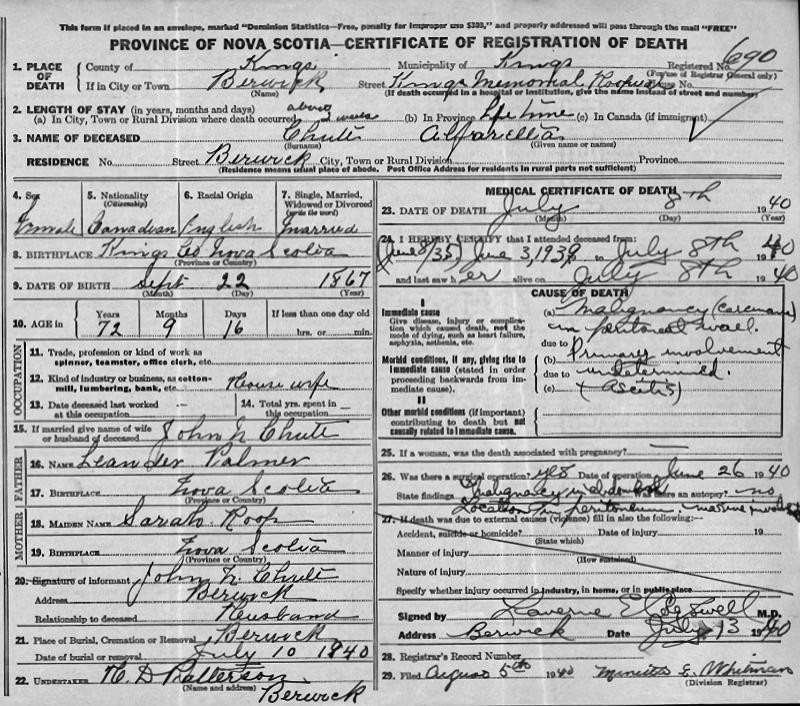 This form if placed in an envelope, marked "Dominion Statistics—Free, penalty for improper use $300," and properly addressed will pass through the mail "FREE"
PROVINCE OF NOVA SCOTIA—CERTIFICATE OF REGISTRATION OF DEATH
1. PLACE OF DEATH County of Kings Municipality of Kings Registered No. 690
(For use of Registrar General only)
If in City or Town Berwick Street Kings Memorial No.
(Name) (If death occurred in a hospital or institution, give the name instead of street and number)
2. LENGTH OF STAY (in years, months and days) about
(a) In City, Town or Rural Division where death occurred 3 weeks (b) In Province Life time (c) In Canada (if immigrant)
3. NAME OF DECEASED Chute
(Surname) (Given name or names)
RESIDENCE No. Street Berwick City, Town or Rural Division Province
(Residence means usual place of abode. Post Office Address for residents in rural parts not sufficient)
4. Sex 5. Nationality (Citizenship) 6. Racial Origin 7. Single, Married, Widowed or Divorced (write the word)
Female Canadian English married
8. BIRTHPLACE Kings Co Nova Scotia
(Province or Country)
9. DATE OF BIRTH Sept 22 1867
(Month) (Day) (Year)
10. AGE in Years Months Days If less than one day old
72 9 16 hrs. or min.
OCCUPATION
11. Trade, profession or kind of work as spinner, teamster, office clerk, etc.
12. Kind of industry or business, as cotton-mill, lumbering, bank, etc. House wife
13. Date deceased last worked at this occupation — 14. Total yrs. spent in this occupation —
15. If married give name of wife or husband of deceased John N Chute
FATHER
16. NAME Leander Palmer
17. BIRTHPLACE Nova Scotia
(Province or Country)
MOTHER
18. MAIDEN NAME Sarah Roop
19. BIRTHPLACE Nova Scotia
(Province or Country)
20. Signature of informant John N. Chute
Address Berwick
Relationship to deceased Husband
21. Place of Burial, Cremation or Removal Berwick
Date of burial or removal July 10 1940
22. UNDERTAKER
(Name and address) Berwick
MEDICAL CERTIFICATE OF DEATH
23. DATE OF DEATH July 8th 1940
(Month) (Day) (Year)
24. I HEREBY CERTIFY that I attended deceased from:
June 3, 193 to July 8th 1940
and last saw her alive on July 8th 1940
CAUSE OF DEATH
I
Immediate cause
Give disease, injury or complication which caused death, not the mode of dying, such as heart failure, asphyxia, asthenia, etc.
(a) Malignancy (carcinoma)
in peritoneal wall.
due to
Morbid conditions, if any, giving rise to immediate cause (stated in order proceeding backwards from immediate cause).
(b) Primary involvement
due to undetermined.
(c) (Ascitis)
II
Other morbid conditions (if important) contributing to death but not causally related to immediate cause.
25. If a woman, was the death associated with pregnancy? —
26. Was there a surgical operation? yes Date of operation June 26 1940
State findings Malignancy in abdomen Was there an autopsy? no
Location in peritoneum.
27. If death was due to external causes (violence) fill in also the following:—
Accident, suicide or homicide? Date of injury 19
(State which)
Manner of injury
(How sustained)
Nature of injury
Specify whether injury occurred in industry, in home, or in public place
Signed by Laverne E. Cogswell M.D.
Address Berwick Date July 13 1940
28. Registrar's Record Number
29. Filed August 5th 1940 E. Whitman
(Division Registrar)